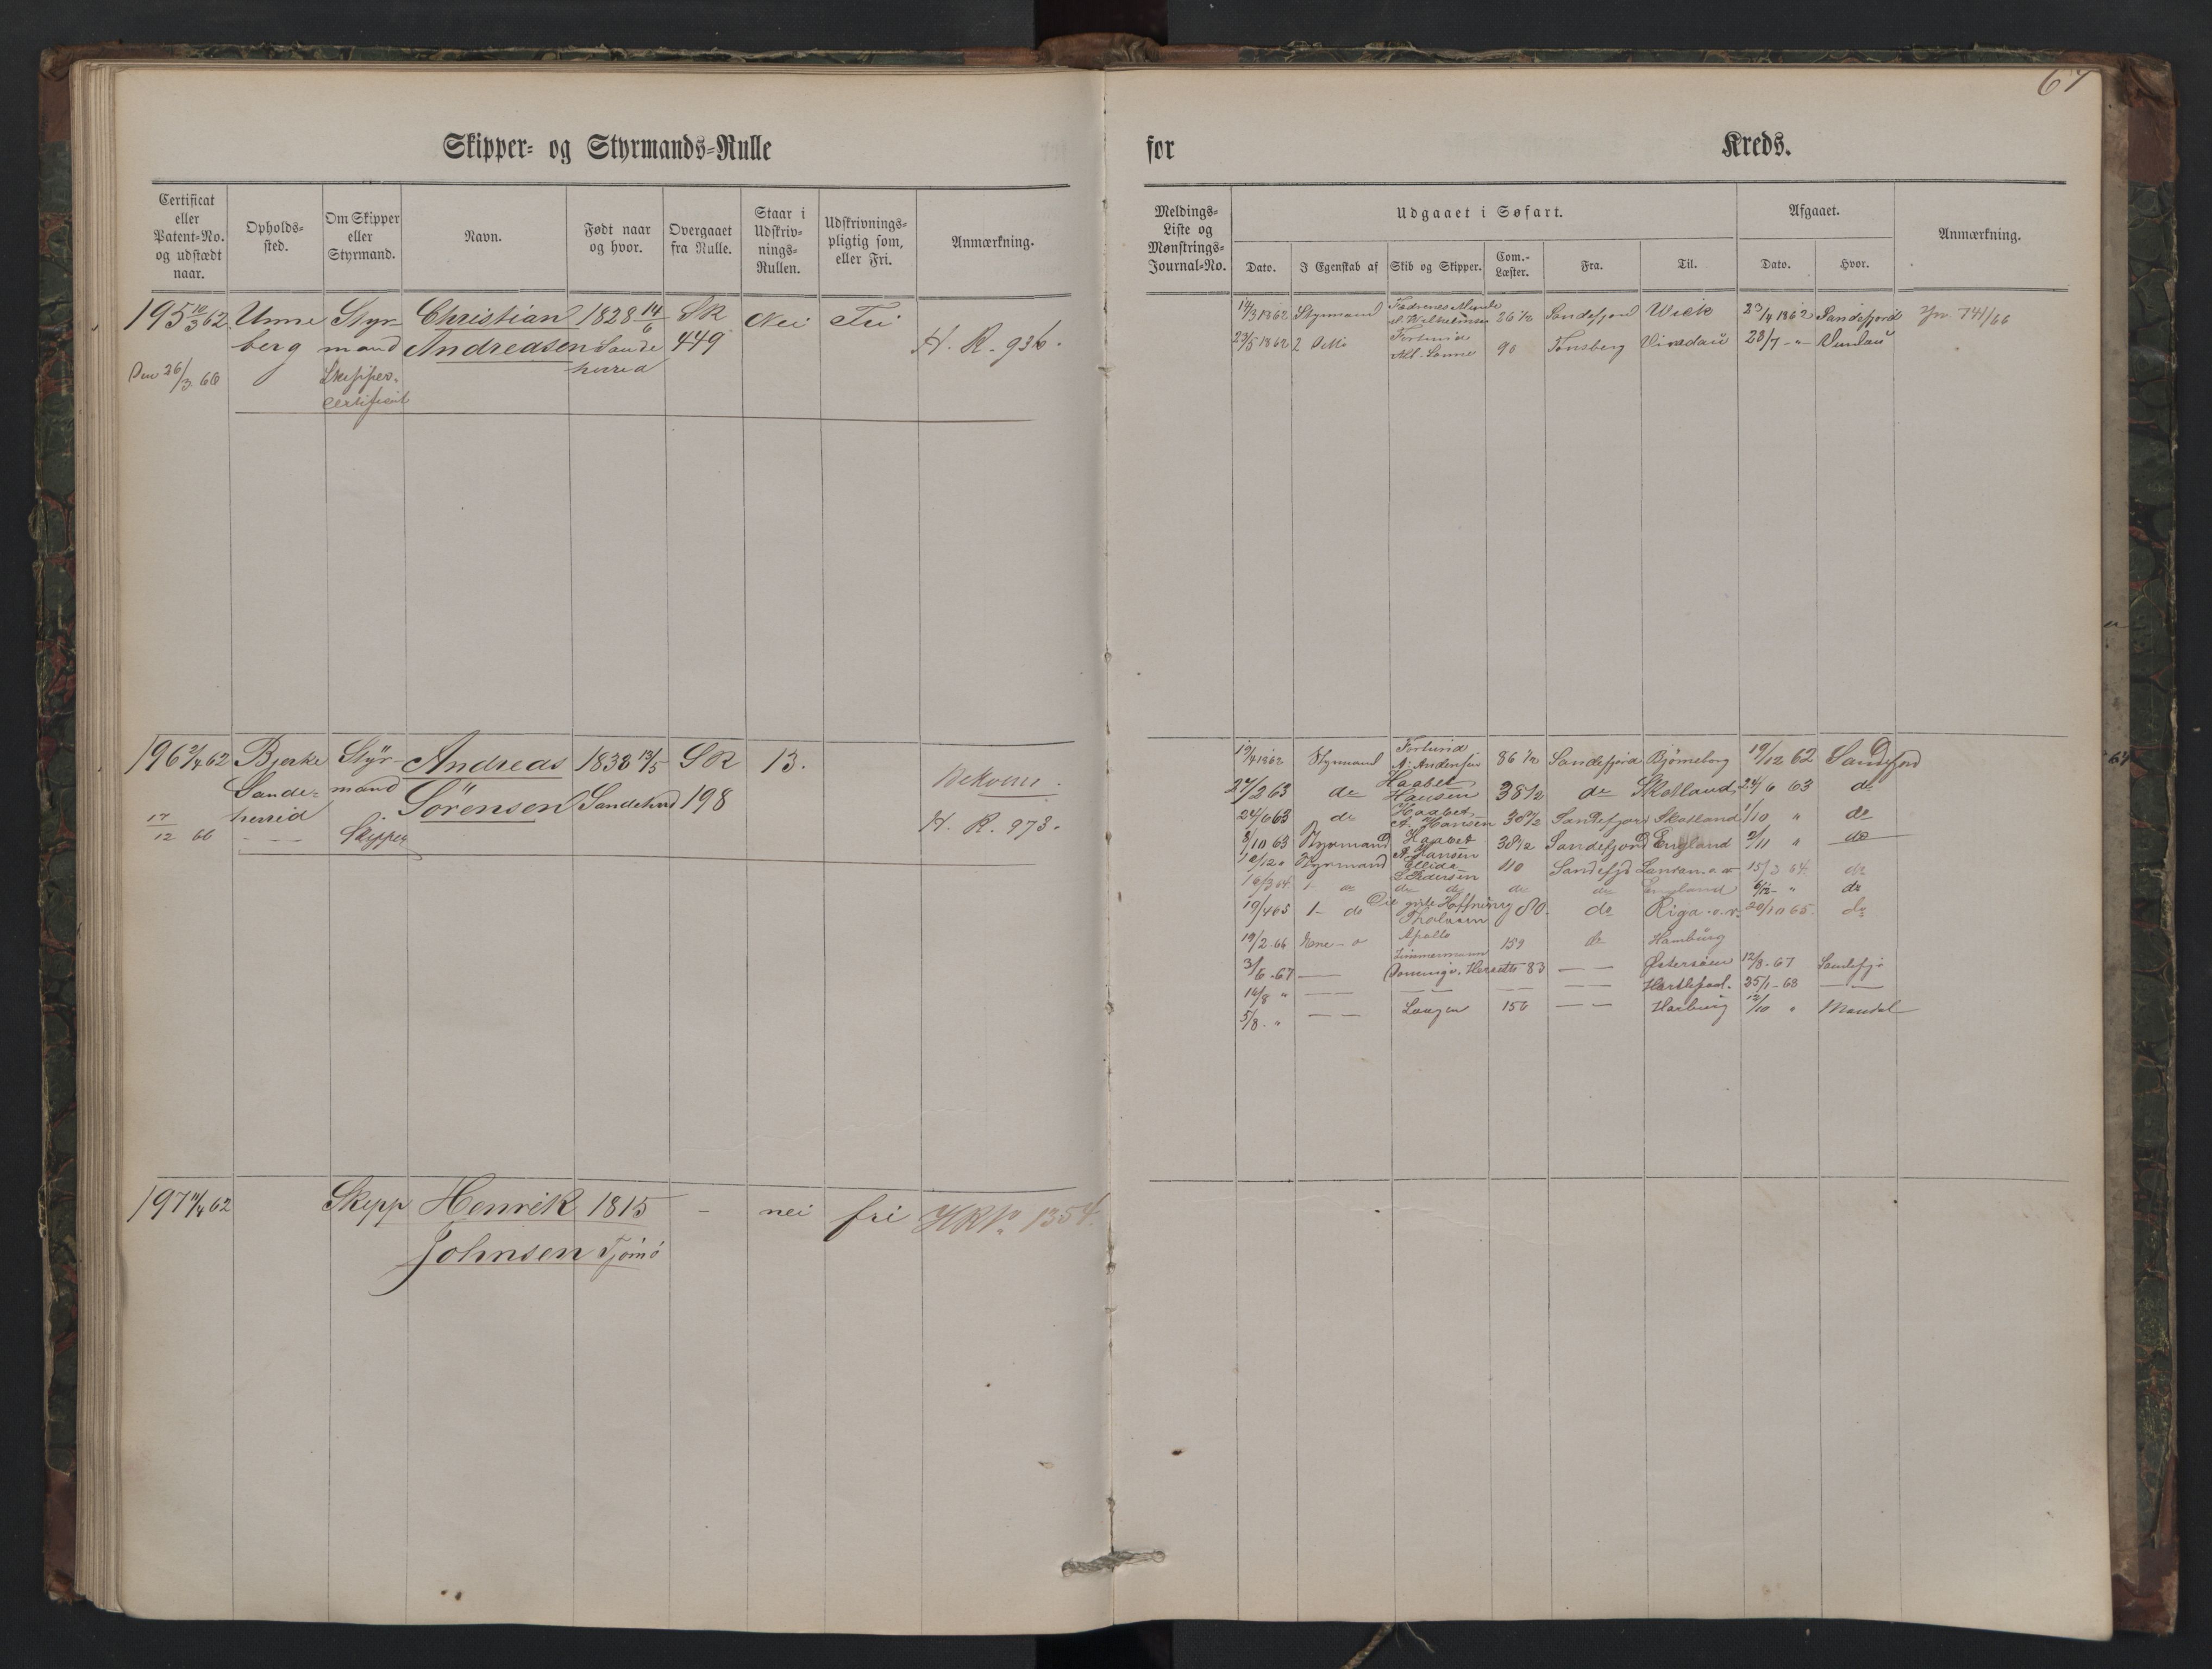 67
Skipper- og Styrmands-Rulle
for Kreds.
Certificat eller Patent-No. og udstædt naar.
Opholds-sted.
Om Skipper eller Styrmand.
Navn.
Født naar og hvor.
Overgaaet fra Rulle.
Staar i Udskriv-nings-Rullen.
Udskrivnings-pligtig som, eller Fri.
Anmærkning.
Meldings-Liste og Mønstrings-Journal-No.
Udgaaet i Søfart.
Dato. I Egenskab af Skib og Skipper. Com.-Læster. Fra. Til.
Afgaaet.
Dato. Hvor.
Anmærkning.
195 12/3 62 Unne Styr- Christian 1828 14/6 SR Nei Fri
berg mand Andreasen Sande 449 H. R. 936.
26/3 66 Skipper- herred
certificat
14/3 1862 Styrmand 26 1/2 Sandefjord Wick 23/4 1862 Sandefjord 741/66
23/5 1862 2 Fortuna 90 Tønsberg 28/7 - "
196 2/4 62 Bjerke Styr- Andreas 1838 13/5 SR 13.
Sande- mand Sörensen Sandeherred 198
herred H. R. 973.
17/12 66 - - Skipper
19/4 1862 Styrmand Fortuna A. Andersen 86 1/2 Sandefjord Bjørneborg 19/12 62 Sandefjord
27/2 63 do Haabet Hansen 38 1/2 do Skotland 24/6 63 do
24/6 63 do Haabet A. Hansen 38 1/2 Sandefjord Skotland 1/10 " do
8/10 63 Styrmand Haabet A. Hansen 38 1/2 Sandefjord England 2/11 " do
12/12 " Styrmand Ellida Pedersen 110 Sandefjd 15/3 64. do
16/3 64 1- do do do do do England 6/12- " do
19/4 65 1- do Det gode Hoffning 80. do Riga o. v. 20/10 65. do
19/2 66 Apollo Zimmermann 159 do Hamburg
3/6. 67 — 83 — — Østersøen 12/8. 67 Sandefj.
14/8 " — — — — — — — — Hartlepool. 25/1- 68 — —
5/8. " — — Laagen 156 — — Harburg 12/10 " Mandal
197 11/4 62 Skipp Henrik 1815 - nei fri HR No 1354.
Johnsen Tjømø